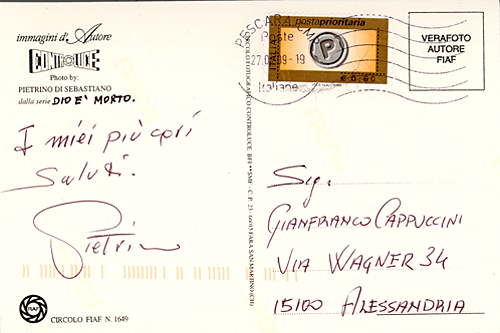 immagini d'Autore
CONTROLUCE
Photo by:
PIETRINO DI SEBASTIANO
dalla serie DIO E' MORTO.
I miei più cari
saluti.
Pietrino
FIAF
CIRCOLO FIAF N. 1649
CIRCOLO FOTOGRAFICO CONTROLUCE BFI
SMF - C. P. 23 - 66015 FARA SAN MARTINO (CH)
PESCARA CMP
Poste
27.0 .09 - 19
Italiane
postaprioritaria
ITALIA
P
€ 0,60
VERAFOTO
AUTORE
FIAF
Sig.
GIANFRANCO CAPPUCCINI
VIA WAGNER 34
15100 ALESSANDRIA